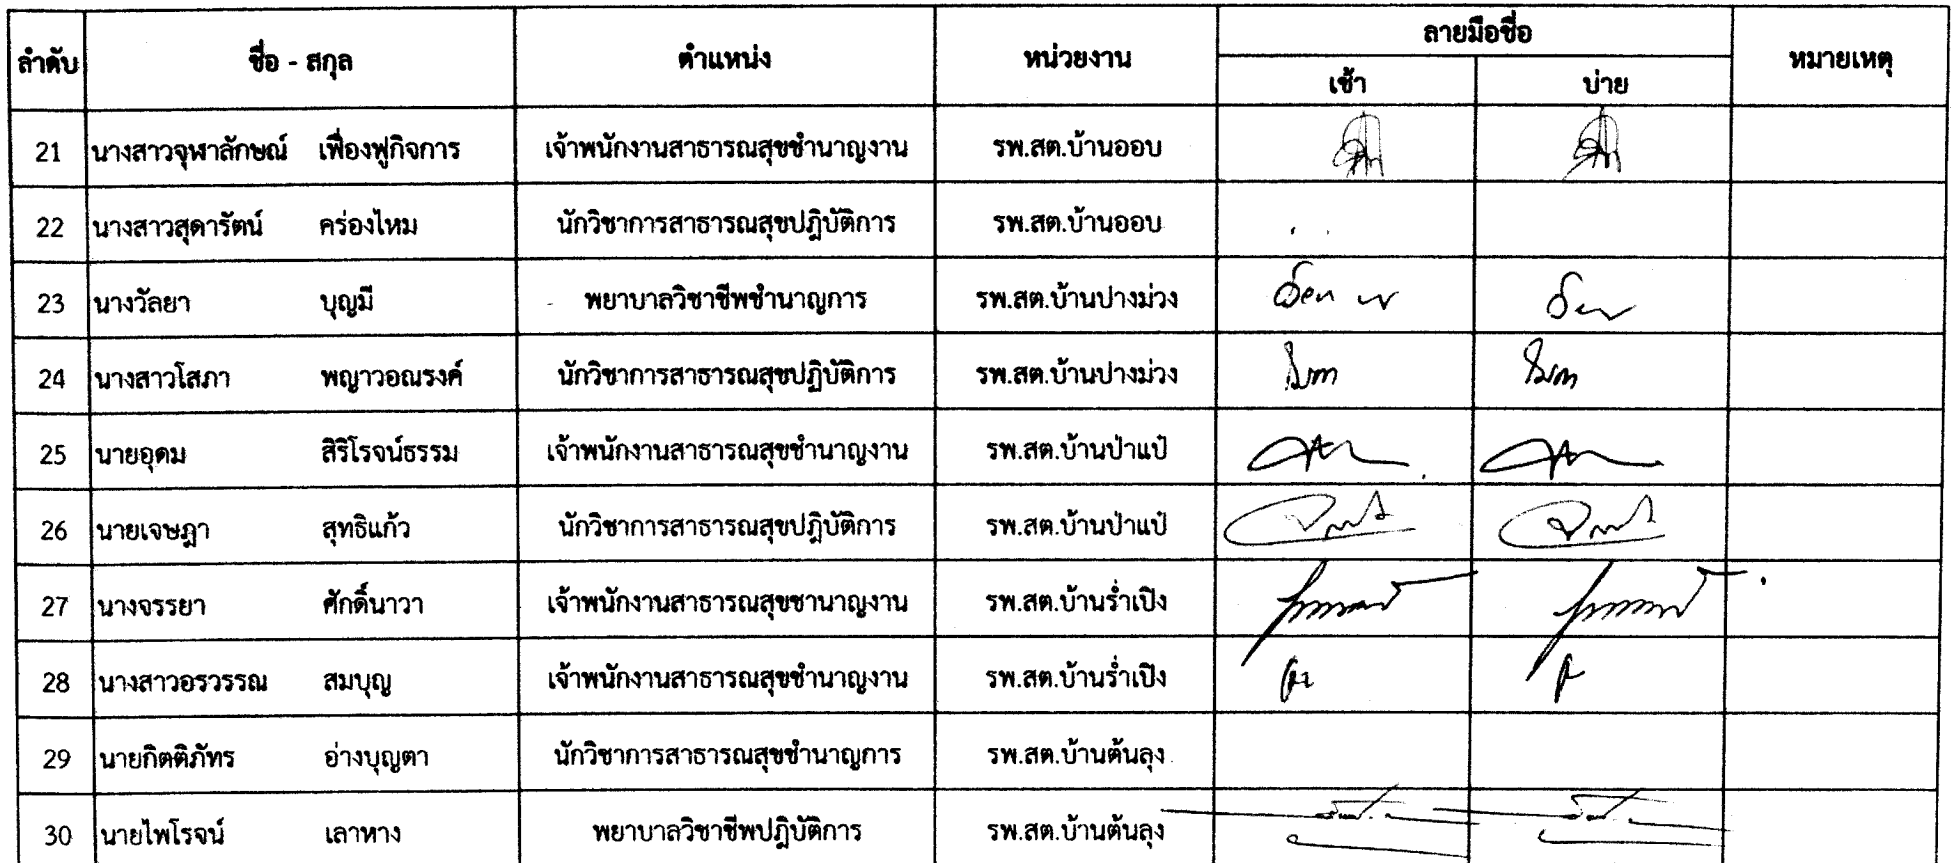 ลำดับ ชื่อ - สกุล ตำแหน่ง หน่วยงาน ลายมือชื่อ หมายเหตุ
เช้า บ่าย
21 นางสาวจุฬาลักษณ์ เฟื่องฟูกิจการ เจ้าพนักงานสาธารณสุขชำนาญงาน รพ.สต.บ้านออบ
22 นางสาวสุดารัตน์ คร่องไหม นักวิชาการสาธารณสุขปฏิบัติการ รพ.สต.บ้านออบ
23 นางวัลยา บุญมี พยาบาลวิชาชีพชำนาญการ รพ.สต.บ้านปางม่วง
24 นางสาวโสภา พญาวอณรงค์ นักวิชาการสาธารณสุขปฏิบัติการ รพ.สต.บ้านปางม่วง
25 นายอุดม สิริโรจน์ธรรม เจ้าพนักงานสาธารณสุขชำนาญงาน รพ.สต.บ้านป่าแป๋
26 นายเจษฎา สุทธิแก้ว นักวิชาการสาธารณสุขปฏิบัติการ รพ.สต.บ้านป่าแป๋
27 นางจรรยา ศักดิ์นาวา เจ้าพนักงานสาธารณสุขชานาญงาน รพ.สต.บ้านร่ำเปิง
28 นางสาวอรวรรณ สมบุญ เจ้าพนักงานสาธารณสุขชำนาญงาน รพ.สต.บ้านร่ำเปิง
29 นายกิตติภัทร อ่างบุญตา นักวิชาการสาธารณสุขชำนาญการ รพ.สต.บ้านต้นลุง
30 นายไพโรจน์ เลาหาง พยาบาลวิชาชีพปฏิบัติการ รพ.สต.บ้านต้นลุง